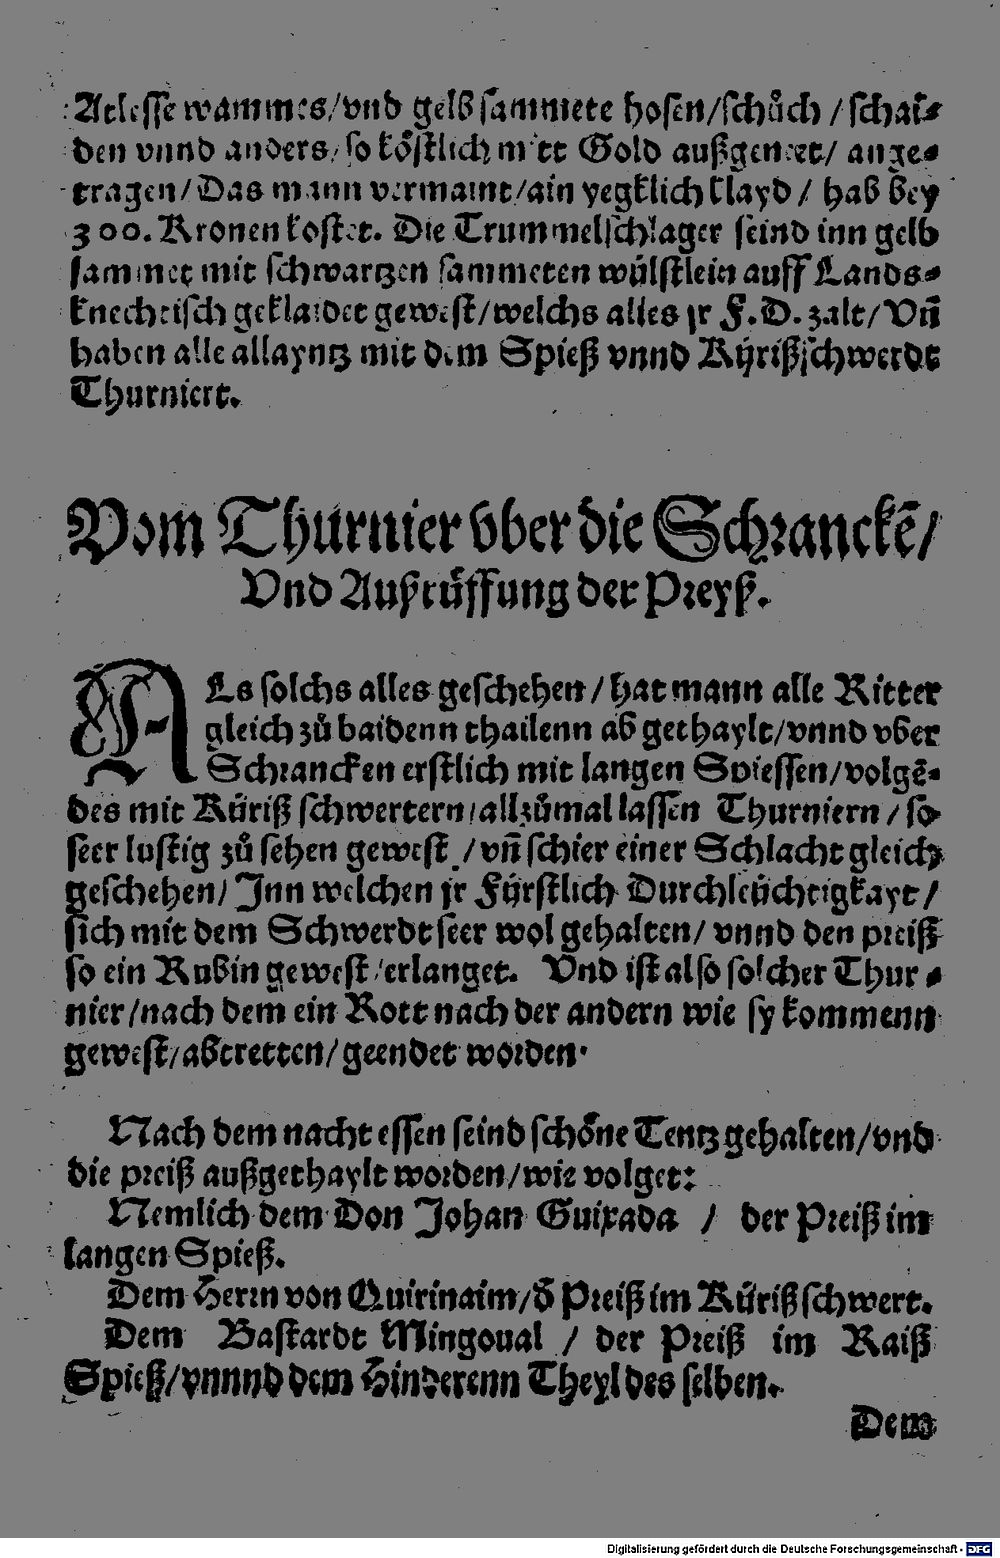 Atlesse wammes/vnd gelb sammete hosen/schůch / schai⸗
den vnnd anders/ so köstlich mitt Gold außgeneet/ ange⸗
tragen/Das mann vermaint/ain yegklich klayd / hab bey
300. Kronen kostet. Die Trummelschlager seind inn gelb
sammet mit schwartzen sammeten wülstlein auff Lands⸗
knechtisch geklaidet gewest/welchs alles jr F.D. zalt/ Vñ
haben alle allayntz mit dem Spieß vnnd Kürißschwerdt
Thurniert.
Vom Thurnier vber die Schranckē/
Vnd Außrüffung der Preyß.
ALs solchs alles geschehen / hat mann alle Ritter
gleich zů baidenn thailenn ab gethaylt/vnnd vber
Schrancken erstlich mit langen Spiessen/volgē⸗
des mit Küriß schwertern/allzůmal lassen Thurniern / so
seer lustig zů sehen gewest / vñ schier einer Schlacht gleich
geschehen/ Inn welchen jr Fürstlich Durchleüchtigkayt /
sich mit dem Schwerdt seer wol gehalten/ vnnd den preiß
so ein Rubin gewest /erlanget. Vnd ist also solcher Thur⸗
nier/nach dem ein Rott nach der andern wie sy kommenn
gewest/abtretten/geendet worden.
Nach dem nacht essen seind schöne Tentz gehalten/vnd
die preiß außgethaylt worden/wie volget:
Nemlich dem Don Johan Guixada / der Preiß im
langen Spieß.
Dem Herrn von Quirinaim/ð Preiß im Küriß schwert.
Dem Bastardt Mingoual / der Preiß im Raiß
Spieß/vnnnd dem Hinderenn Theyl des selben.
Dem
Digitalisierung gefördert durch die Deutsche Forschungsgemeinschaft - DFG